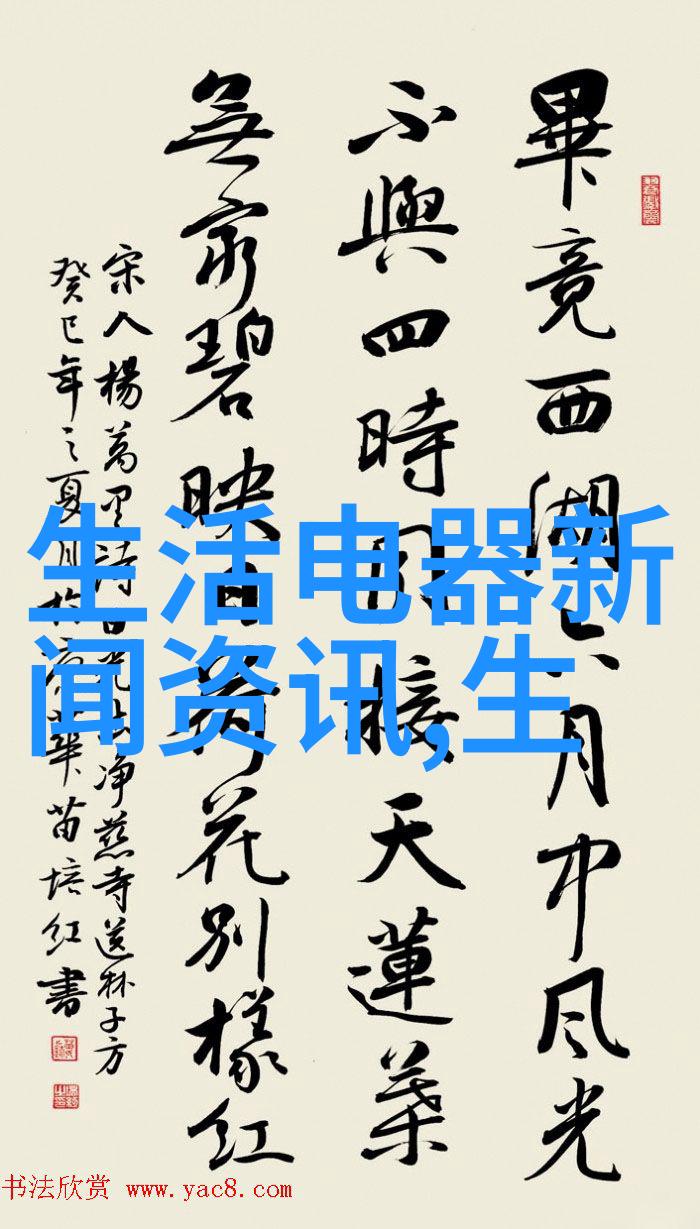 畢竟西湖六月中風光
不與四時同接天蓮葉
無窮碧映日荷花別樣紅
宋人楊萬里詩曉出净慈寺送林子方
癸巳年之夏月於京華苗培红書
生活电器新
闻资讯,生
书法欣赏 www.yac8.com